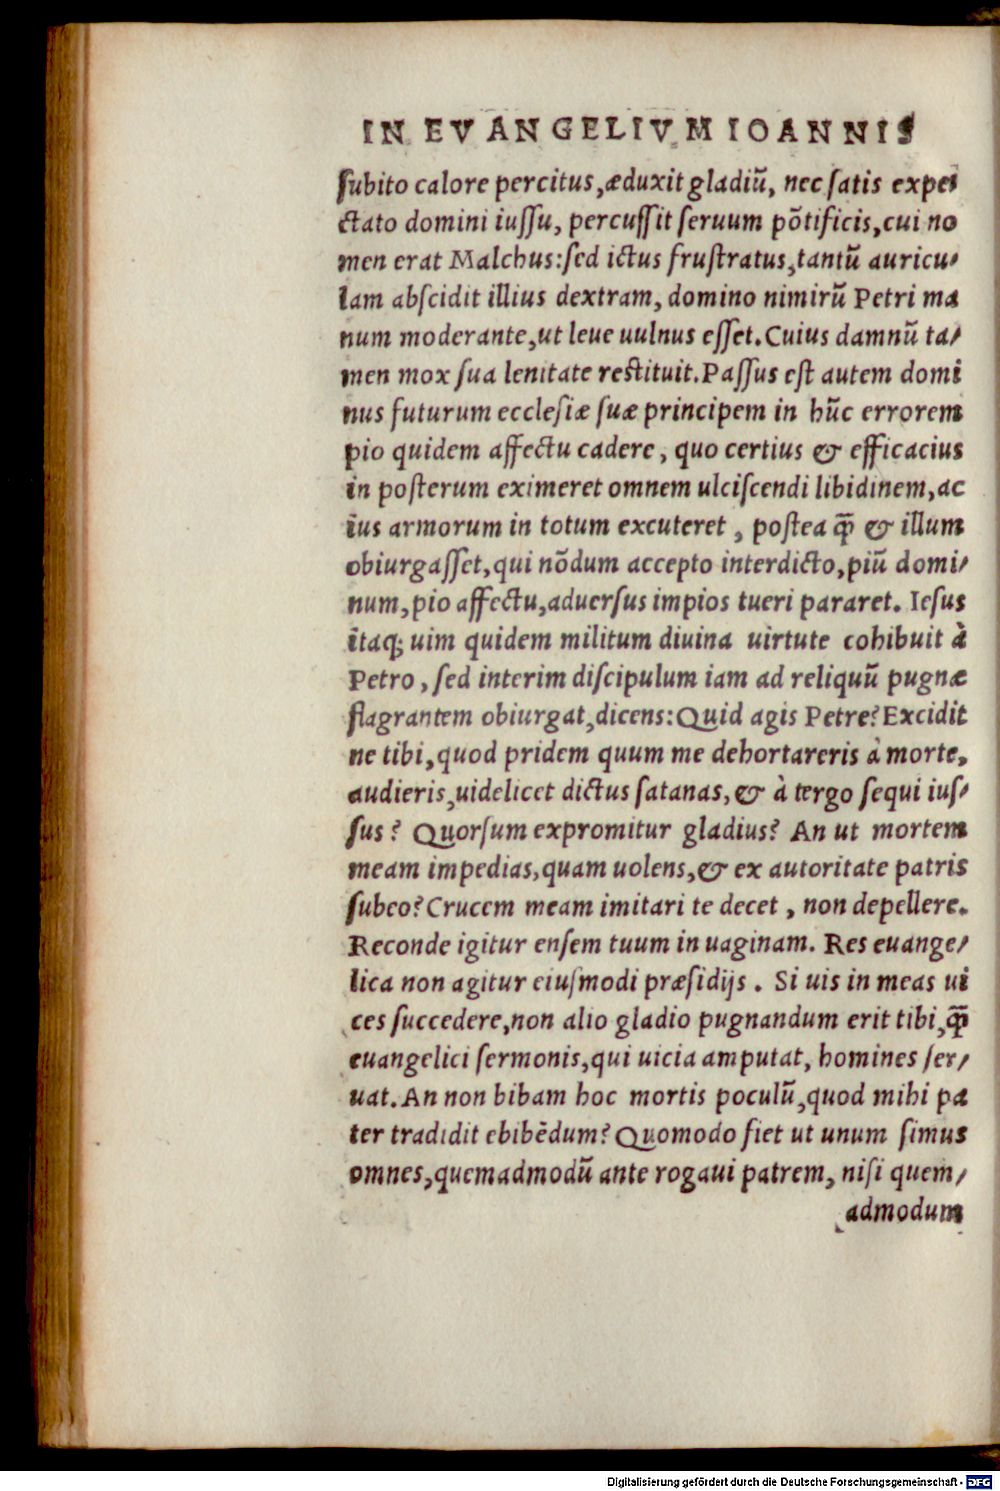 IN EVANGELIVM IOANNIS
ſubito calore percitus,æduxit gladiũ, nec ſatis expe
ctato domini iuſſu, percuſſit ſeruum põtificis,cui no
men erat Malchus:ſed ictus fruſtratus,tantũ auricu/
lam abſcidit illius dextram, domino nimirũ Petri ma
num moderante,ut leue uulnus eſſet.Cuius damnũ ta/
men mox ſua lenitate reſtituit.Paſſus eſt autem domi
nus futurum eccleſiæ ſuæ principem in hũc errorem
pio quidem affectu cadere, quo certius & efficacius
in poſterum eximeret omnem ulciſcendi libidinem,ac
ius armorum in totum excuteret, poſtea q̃ & illum
obiurgaſſet,qui nõdum accepto interdicto,piũ domi/
num,pio affectu,aduerſus impios tueri pararet. Ieſus
itaq; uim quidem militum diuina uirtute cohibuit à
Petro, ſed interim diſcipulum iam ad reliquũ pugnæ
flagrantem obiurgat,dicens:Quid agis Petre?Excidit
ne tibi,quod pridem quum me dehortareris à morte,
audieris,uidelicet dictus ſatanas,& à tergo ſequi iuſ/
ſus? Quorſum expromitur gladius? An ut mortem
meam impedias,quam uolens,& ex autoritate patris
ſubeo?Crucem meam imitari te decet, non depellere.
Reconde igitur enſem tuum in uaginam. Res euange/
lica non agitur eiuſmodi præſidijs. Si uis in meas ui
ces ſuccedere,non alio gladio pugnandum erit tibi,q̃
euangelici ſermonis,qui uicia amputat, homines ſer/
uat.An non bibam hoc mortis poculũ,quod mihi pa
ter tradidit ebibẽdum?Quomodo fiet ut unum ſimus
omnes,quemadmodũ ante rogaui patrem, niſi quem/
admodum
Digitalisierung gefördert durch die Deutsche Forschungsgemeinschaft - DFG